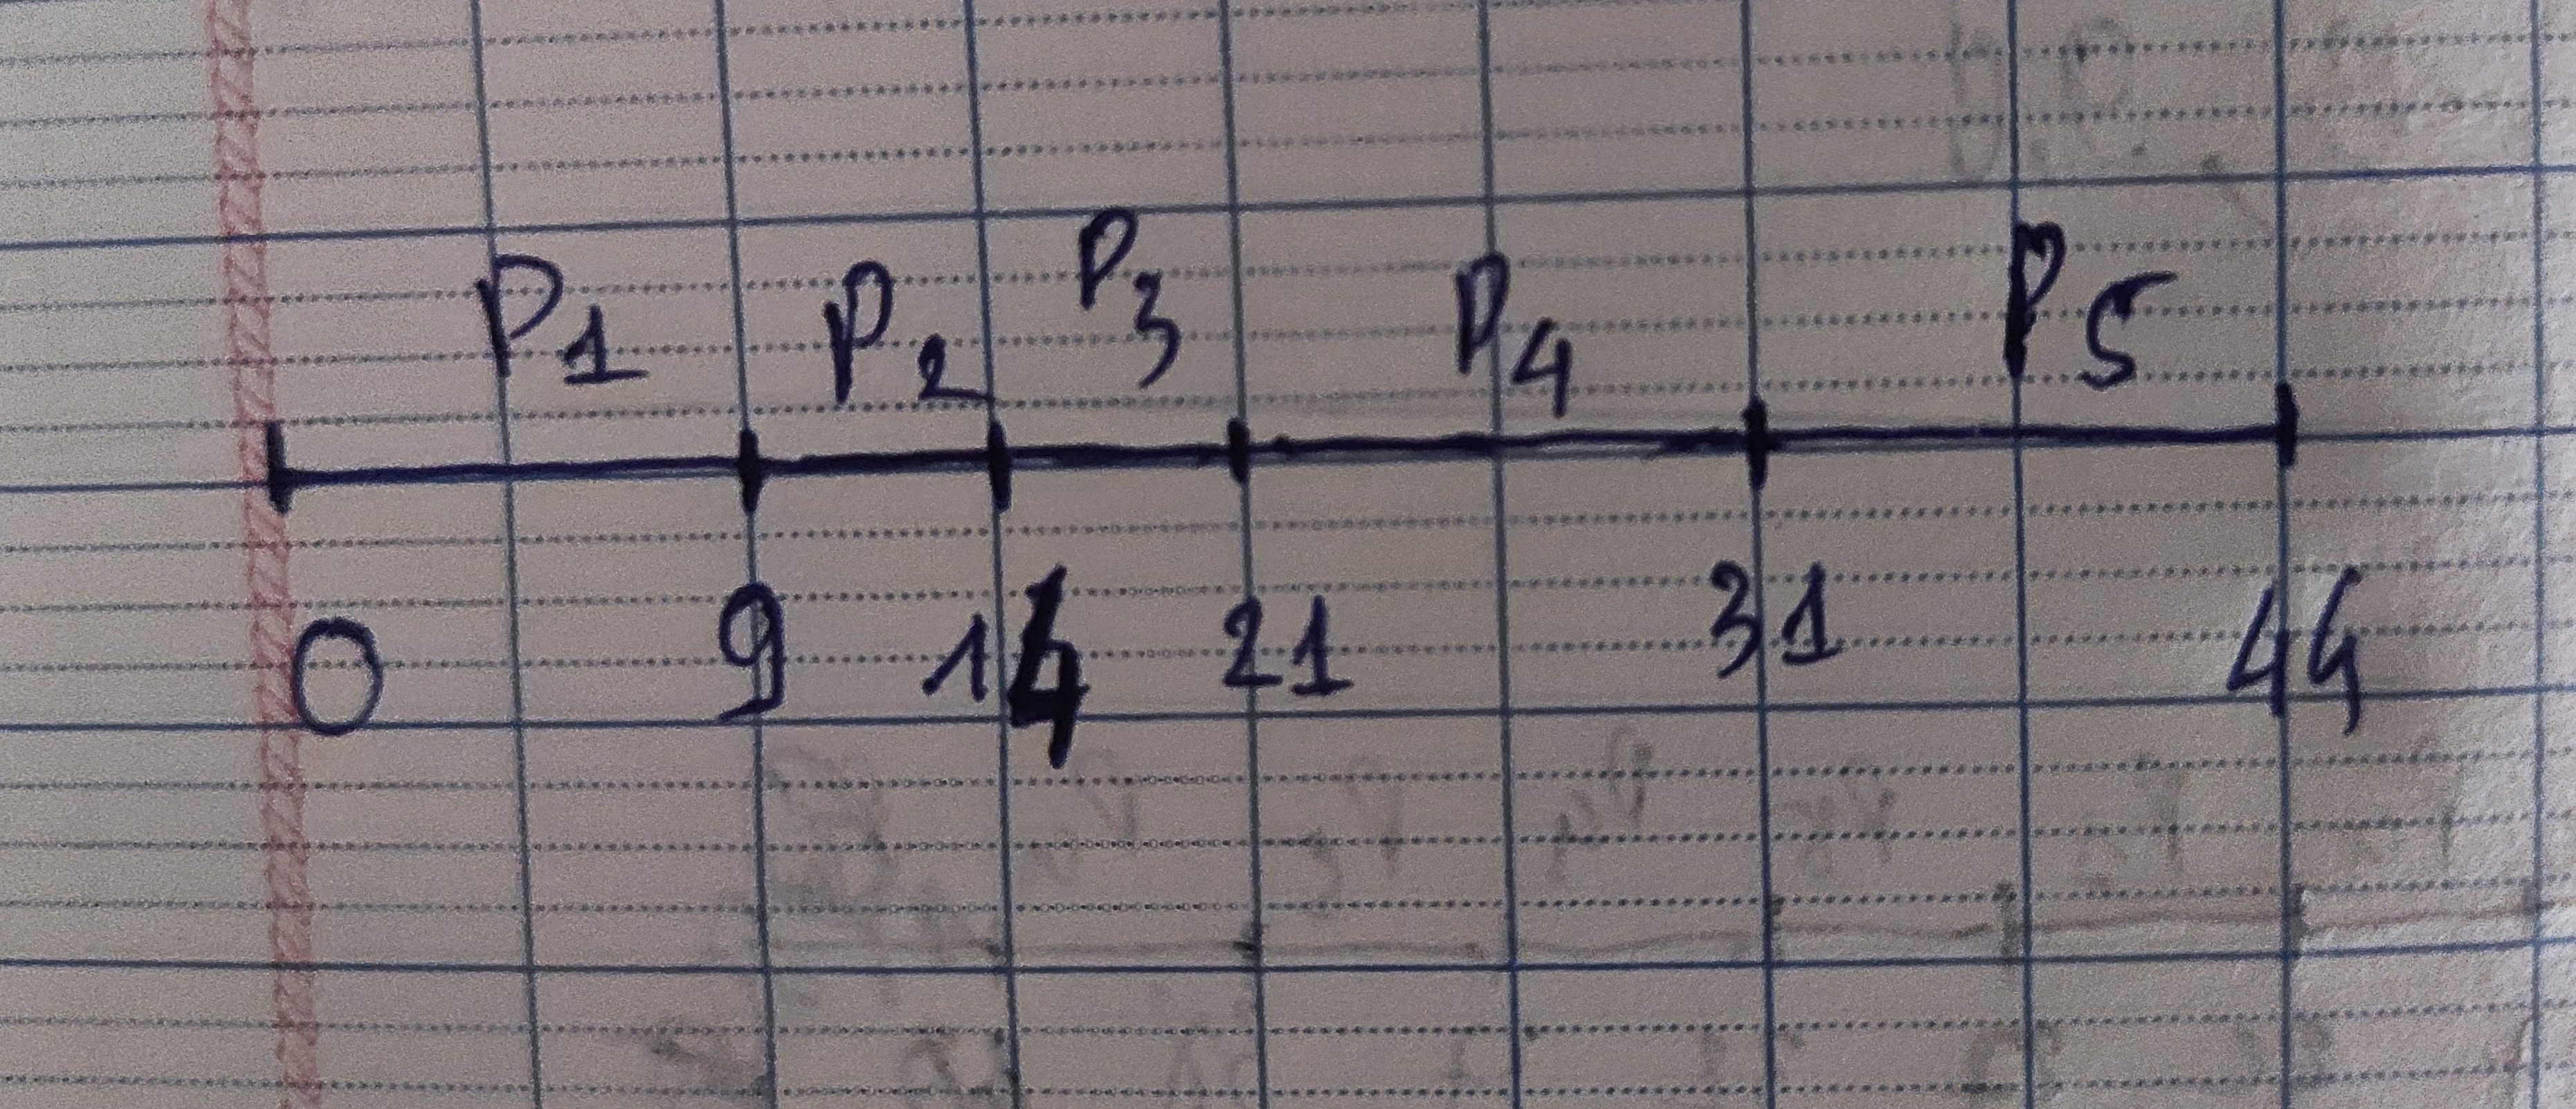 P1 P2 P3 P4 P5
0 9 14 21 31 44